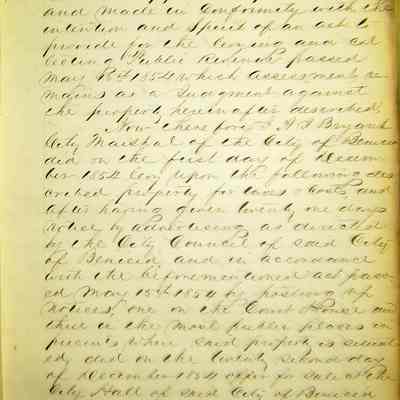 and made in Conformity with the
intention and Spirit of an act to
provide for the levying and Col
lecting Public Revenue passed
May 15th 1854 which assessment re
mains as a Judgment against
the property herein after described.
Now therefore I A. J. Bryant
City Marshal of the City of Benicia
did on the first day of Decem
ber 1854 levy upon the following des
cribed property for taxes & Costs and
after having given twenty one days
notice by advertising as directed
by the City Council of said City
of Benicia and in accordance
with the beforementioned act pass
ed May 15th 1854 by posting up
notices, one on the Court House and
three in the most public places in
precincts where said property is situat
ed, did on the twenty second day
of December 1854 offer for sale at the
City Hall of said City of Benicia